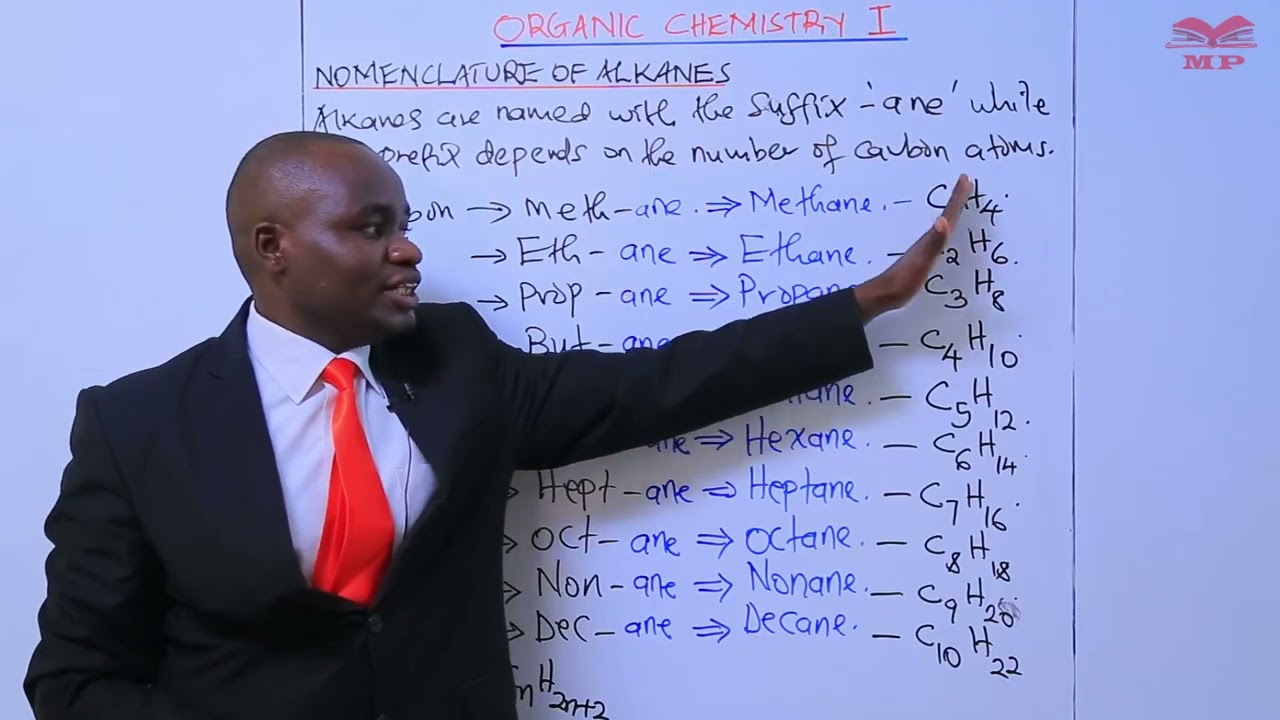 ORGANIC CHEMISTRY I
MP
NOMENCLATURE OF ALKANES
Alkanes are named with the suffix -'ane' while
prefix depends on the number of carbon atoms.
→ Meth-ane. ⇒ Methane. - CH₄.
→ Eth- ane ⇒ Ethane. - ₂H₆.
→ Prop - ane ⇒ Propane - C₃H₈
But- ane - C₄H₁₀.
- C₅H₁₂.
ane ⇒ Hexane. - C₆H₁₄
→ Hept - ane ⇒ Heptane. - C₇H₁₆
→ Oct- ane ⇒ Octane. - C₈H₁₈
→ Non- ane ⇒ Nonane. - C₉H₂₀.
→ Dec- ane ⇒ Decane. - C₁₀H₂₂
H₂ₙ₊₂